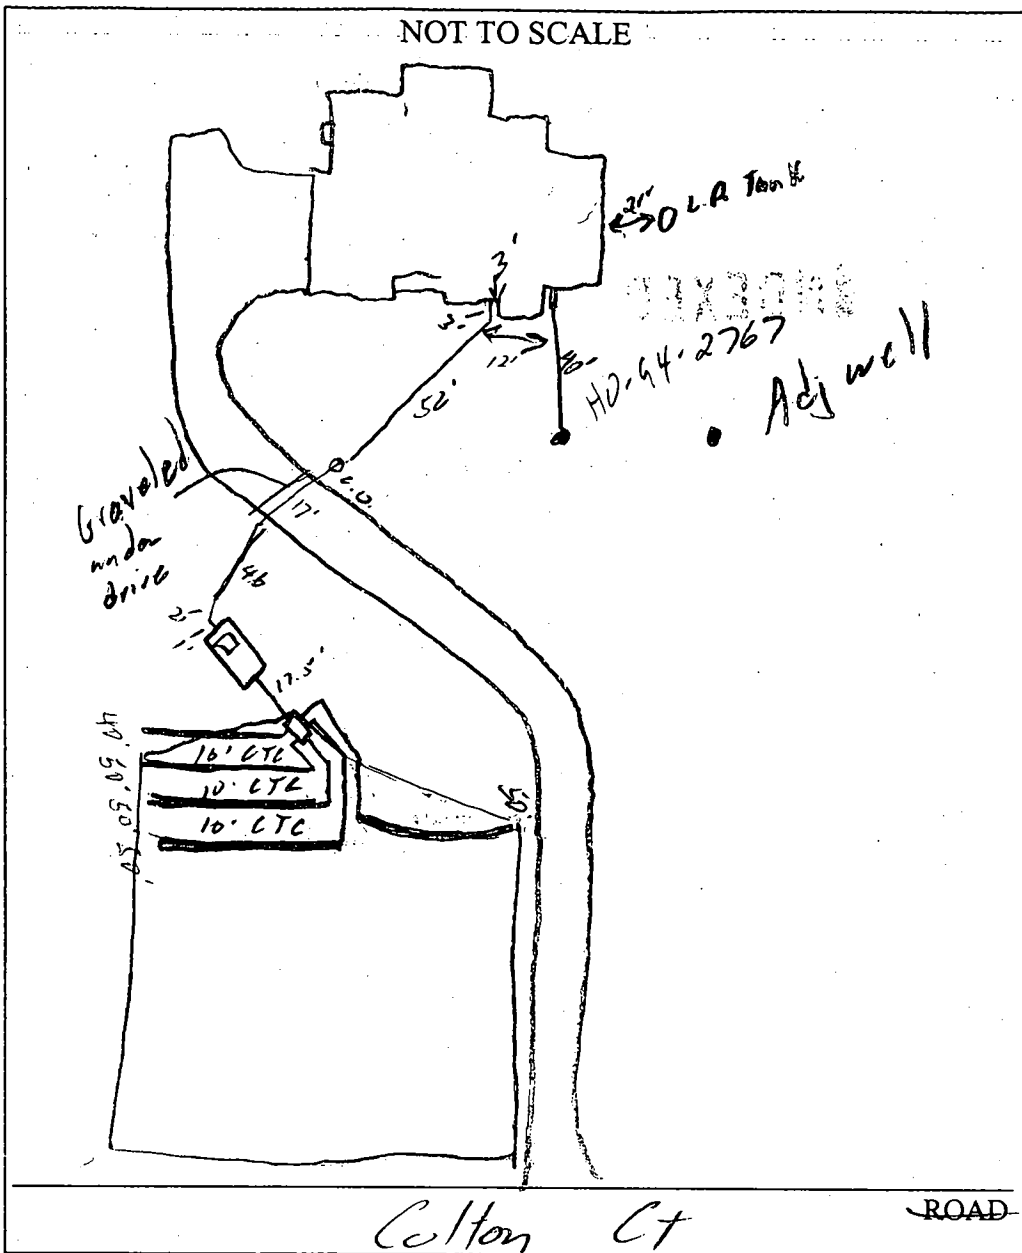 NOT TO SCALE
21'
L.P. Tank
3'
3'
12'
40'
HO-94-2767
Adj well
52'
C.O.
Graveled
under
drive
17'
46
2'
1'
17.5'
10' CTC
10' CTC
10' CTC
40' 50' 50' 50'
50'
ROAD
Colton Ct